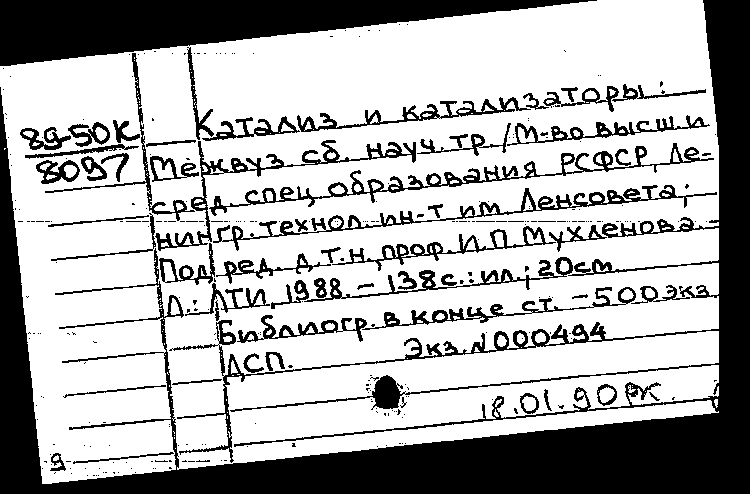 89-50К
8097
Катализ и катализаторы:
Межвуз. сб. науч. тр./М-во высш. и
сред. спец. образования РСФСР, Ле-
нингр. технол. ин-т им. Ленсовета;
Под ред. д.т.н., проф. И.П. Мухленова. -
Л.: ЛТИ, 1988. - 138с.: ил.; 20см
Библиогр. в конце ст. - 500 экз.
ДСП. Экз. N000494
18.01.90
9